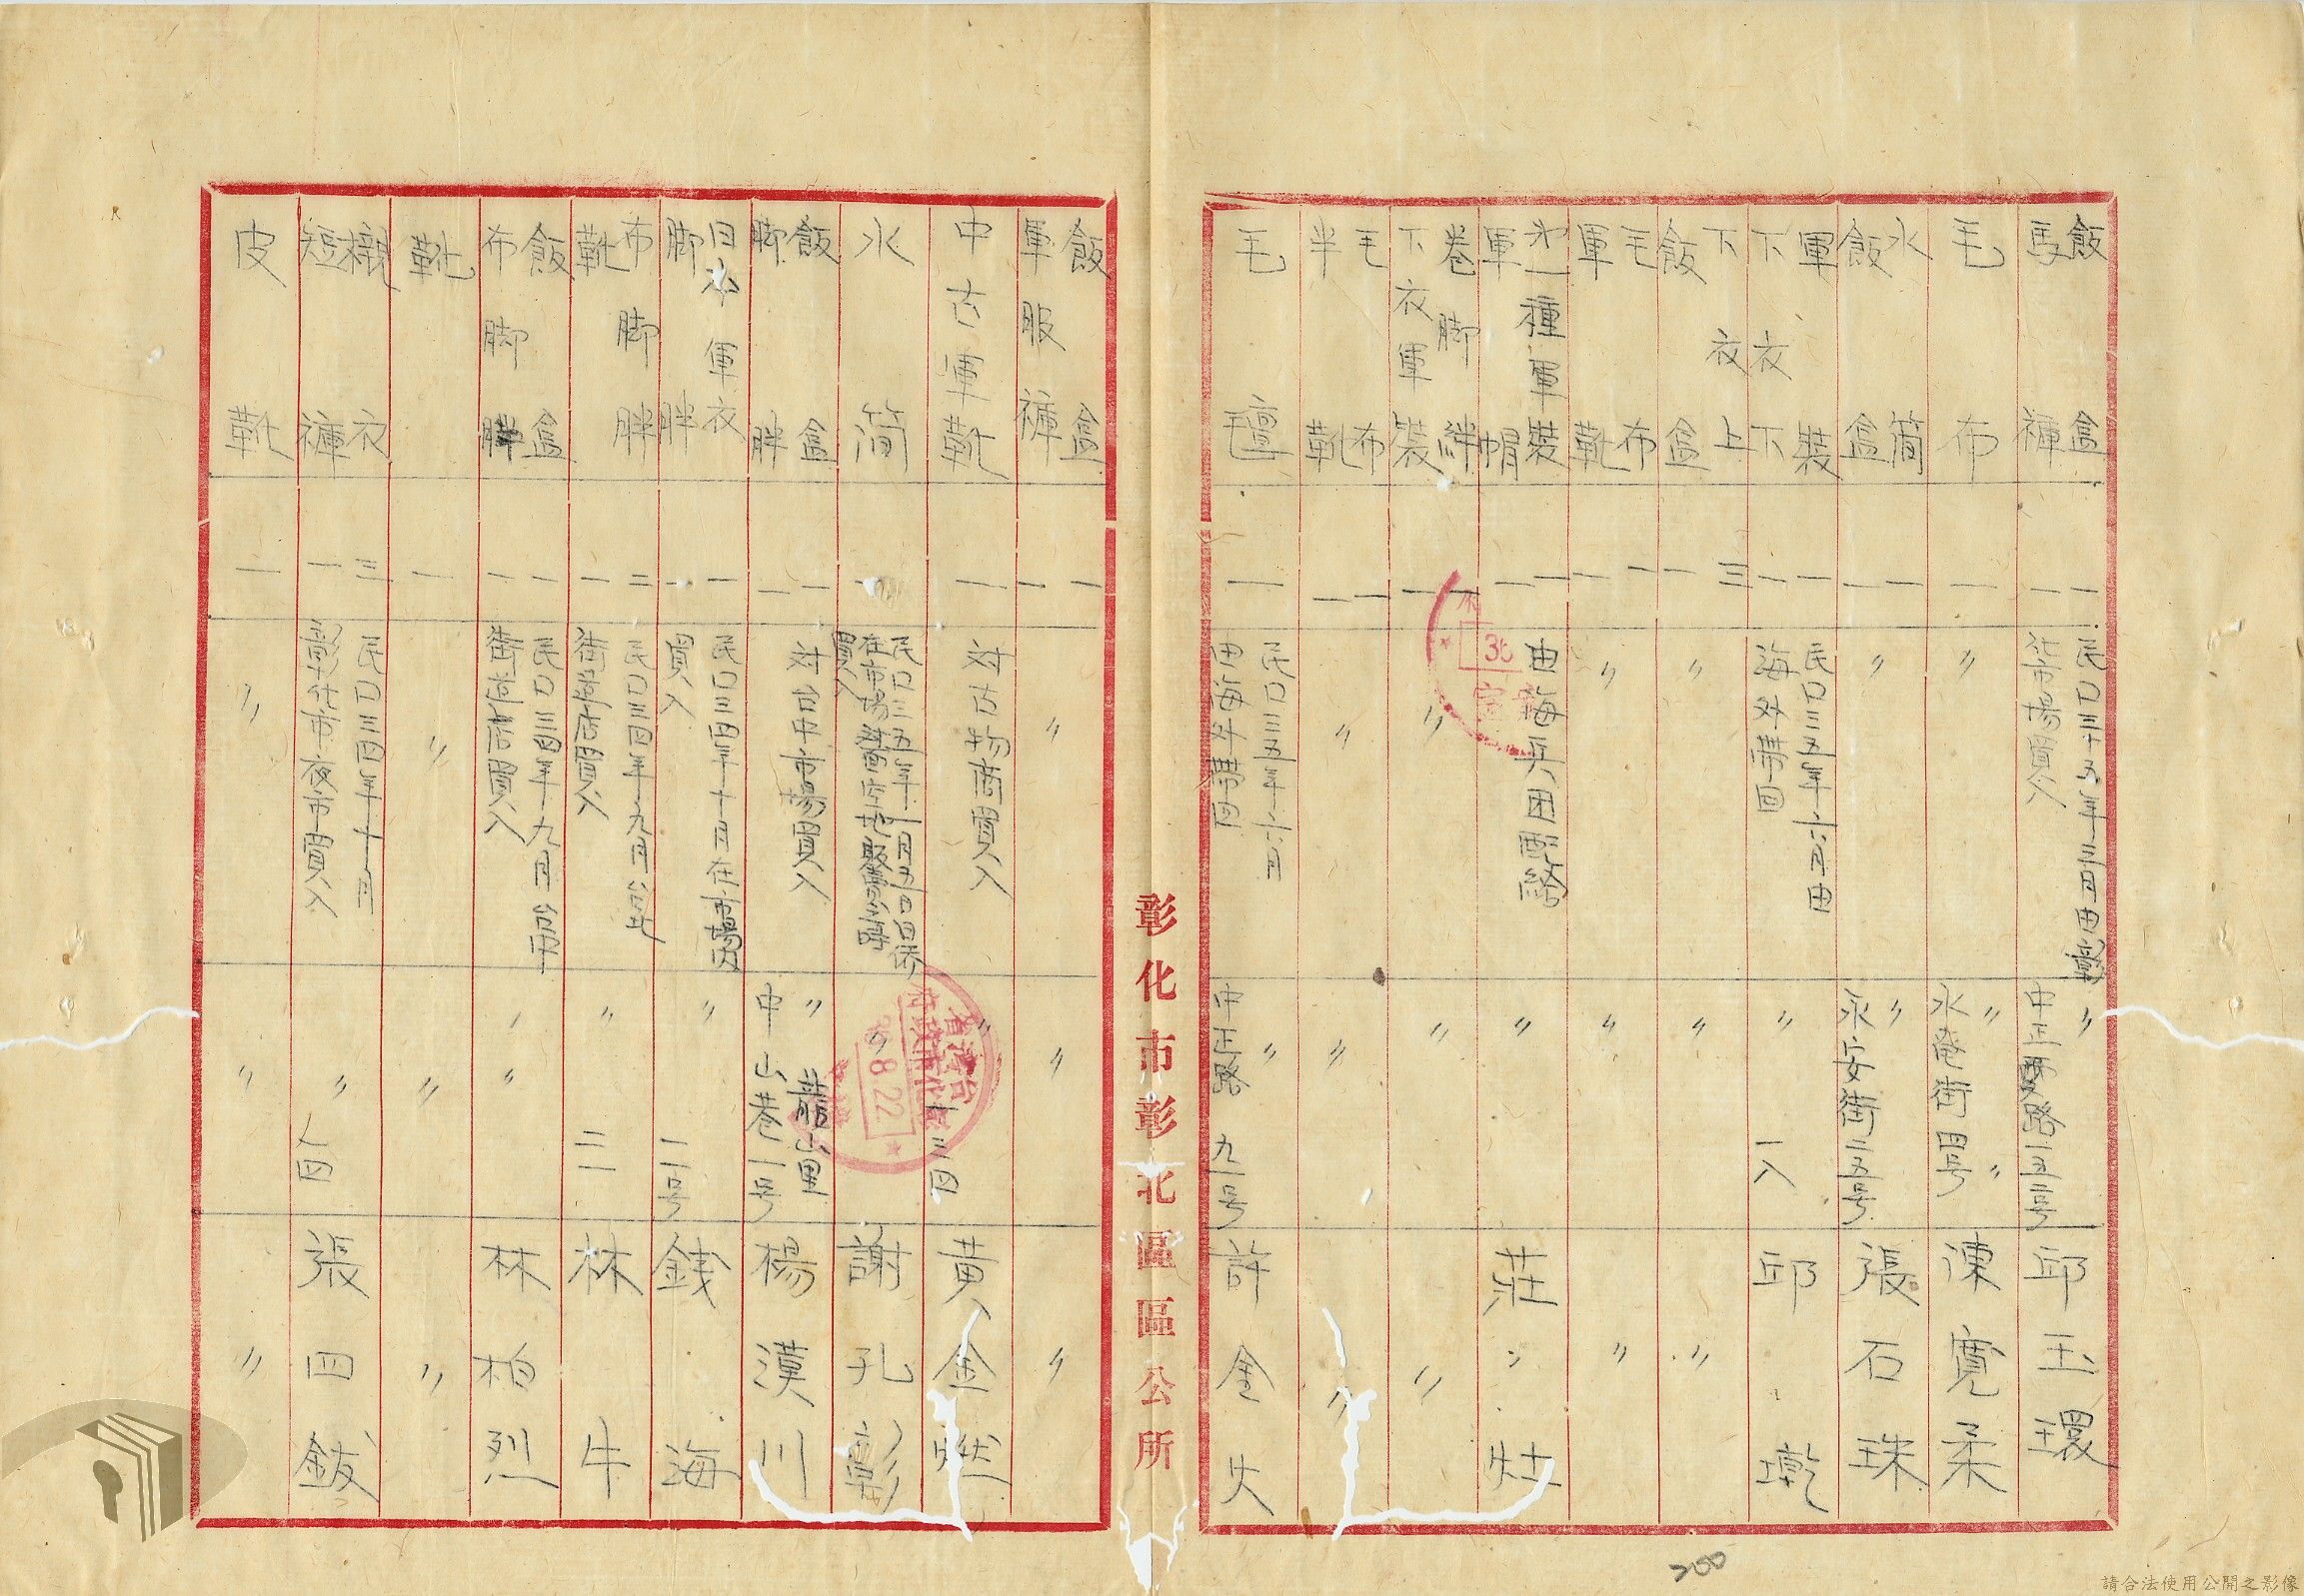 飯盒 一 民囗三十五年三月由彰 〃
馬褲 一 化市場買入 中正路一五三号 邱玉環
毛布 一 〃 〃 永庵街四号 陳寬柔
水筒 一
飯盒 一 〃 〃 永安街二五号 張石珠
軍裝 一 民囗三五年六月由
下衣下 一 海外携回 〃 一八 邱乾
下衣上 三
飯盒 一 〃 〃 〃
毛布 一
軍靴 一 〃 〃 〃
第一種軍裝 一 由海兵團配給
軍帽 一 〃 莊〃牡
卷脚絆 一
下衣軍裝 一 〃 〃 〃
毛布 一
半靴 一 〃 〃 〃
毛氈 一 民囗三五年六月由海外携回 〃 中正路九一号 許金火
彰化市彰北區區公所
飯盒 一
軍服褲 一 〃 〃 〃
中古軍靴 一 对古物商買入 〃 一三四 黃金燃
水筒 民囗三五年一月五日日僑在市場
買入 〃 謝孔彰
飯盒 一 对台中市場買入 〃 龍山里
脚胖 一 中山巷一号 楊漢川
日本軍衣 一 民囗三四年十月在市場内
脚胖 一 買入 〃 二一号 銭海
布脚胖 二 民囗三四年九月台北
靴 一 街造店買入 〃 二一 林牛
飯盒 一 民囗三四年九月台中
布脚胖 一 街造店買入 〃 〃 林柏烈
靴 一 〃 〃 〃
襯衣 三 民囗三四年十一月
短褲 一 彰化市夜市買入 〃 八四 張四鈸
皮靴 一 〃 〃 〃
台灣省
彰化市政府
36.8.22
200
請合法使用公開之影像